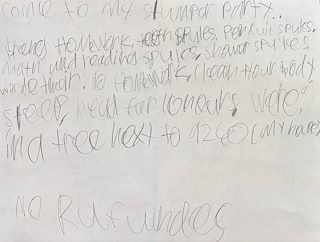 come to my slumper party..
breands HOMEWORK, teeth spules. Perkun spules.
math and reading spules, shower spules
to Homework, clean your body
sleep, need for conours were"
in a tree next to 9260 (my house)
NO Rufundes